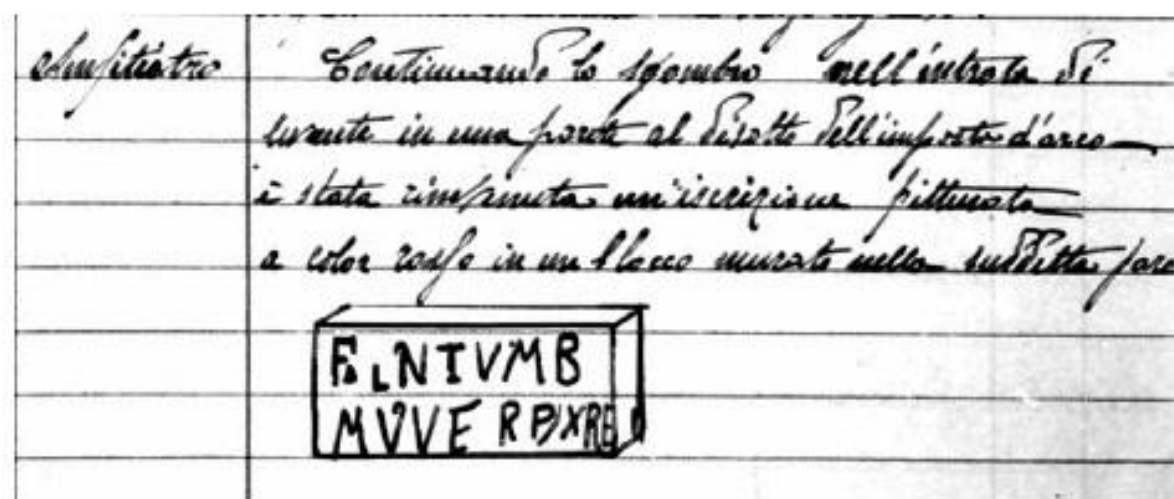 Anfiteatro
Continuando lo sgombro nell'intrata di
levante in una parete al disotto dell'imposta d'arco
è stata rinvenuta un'iscrizione pitturata
a color rosso in un blocco murato nella suddetta
NTVMB
MVVE